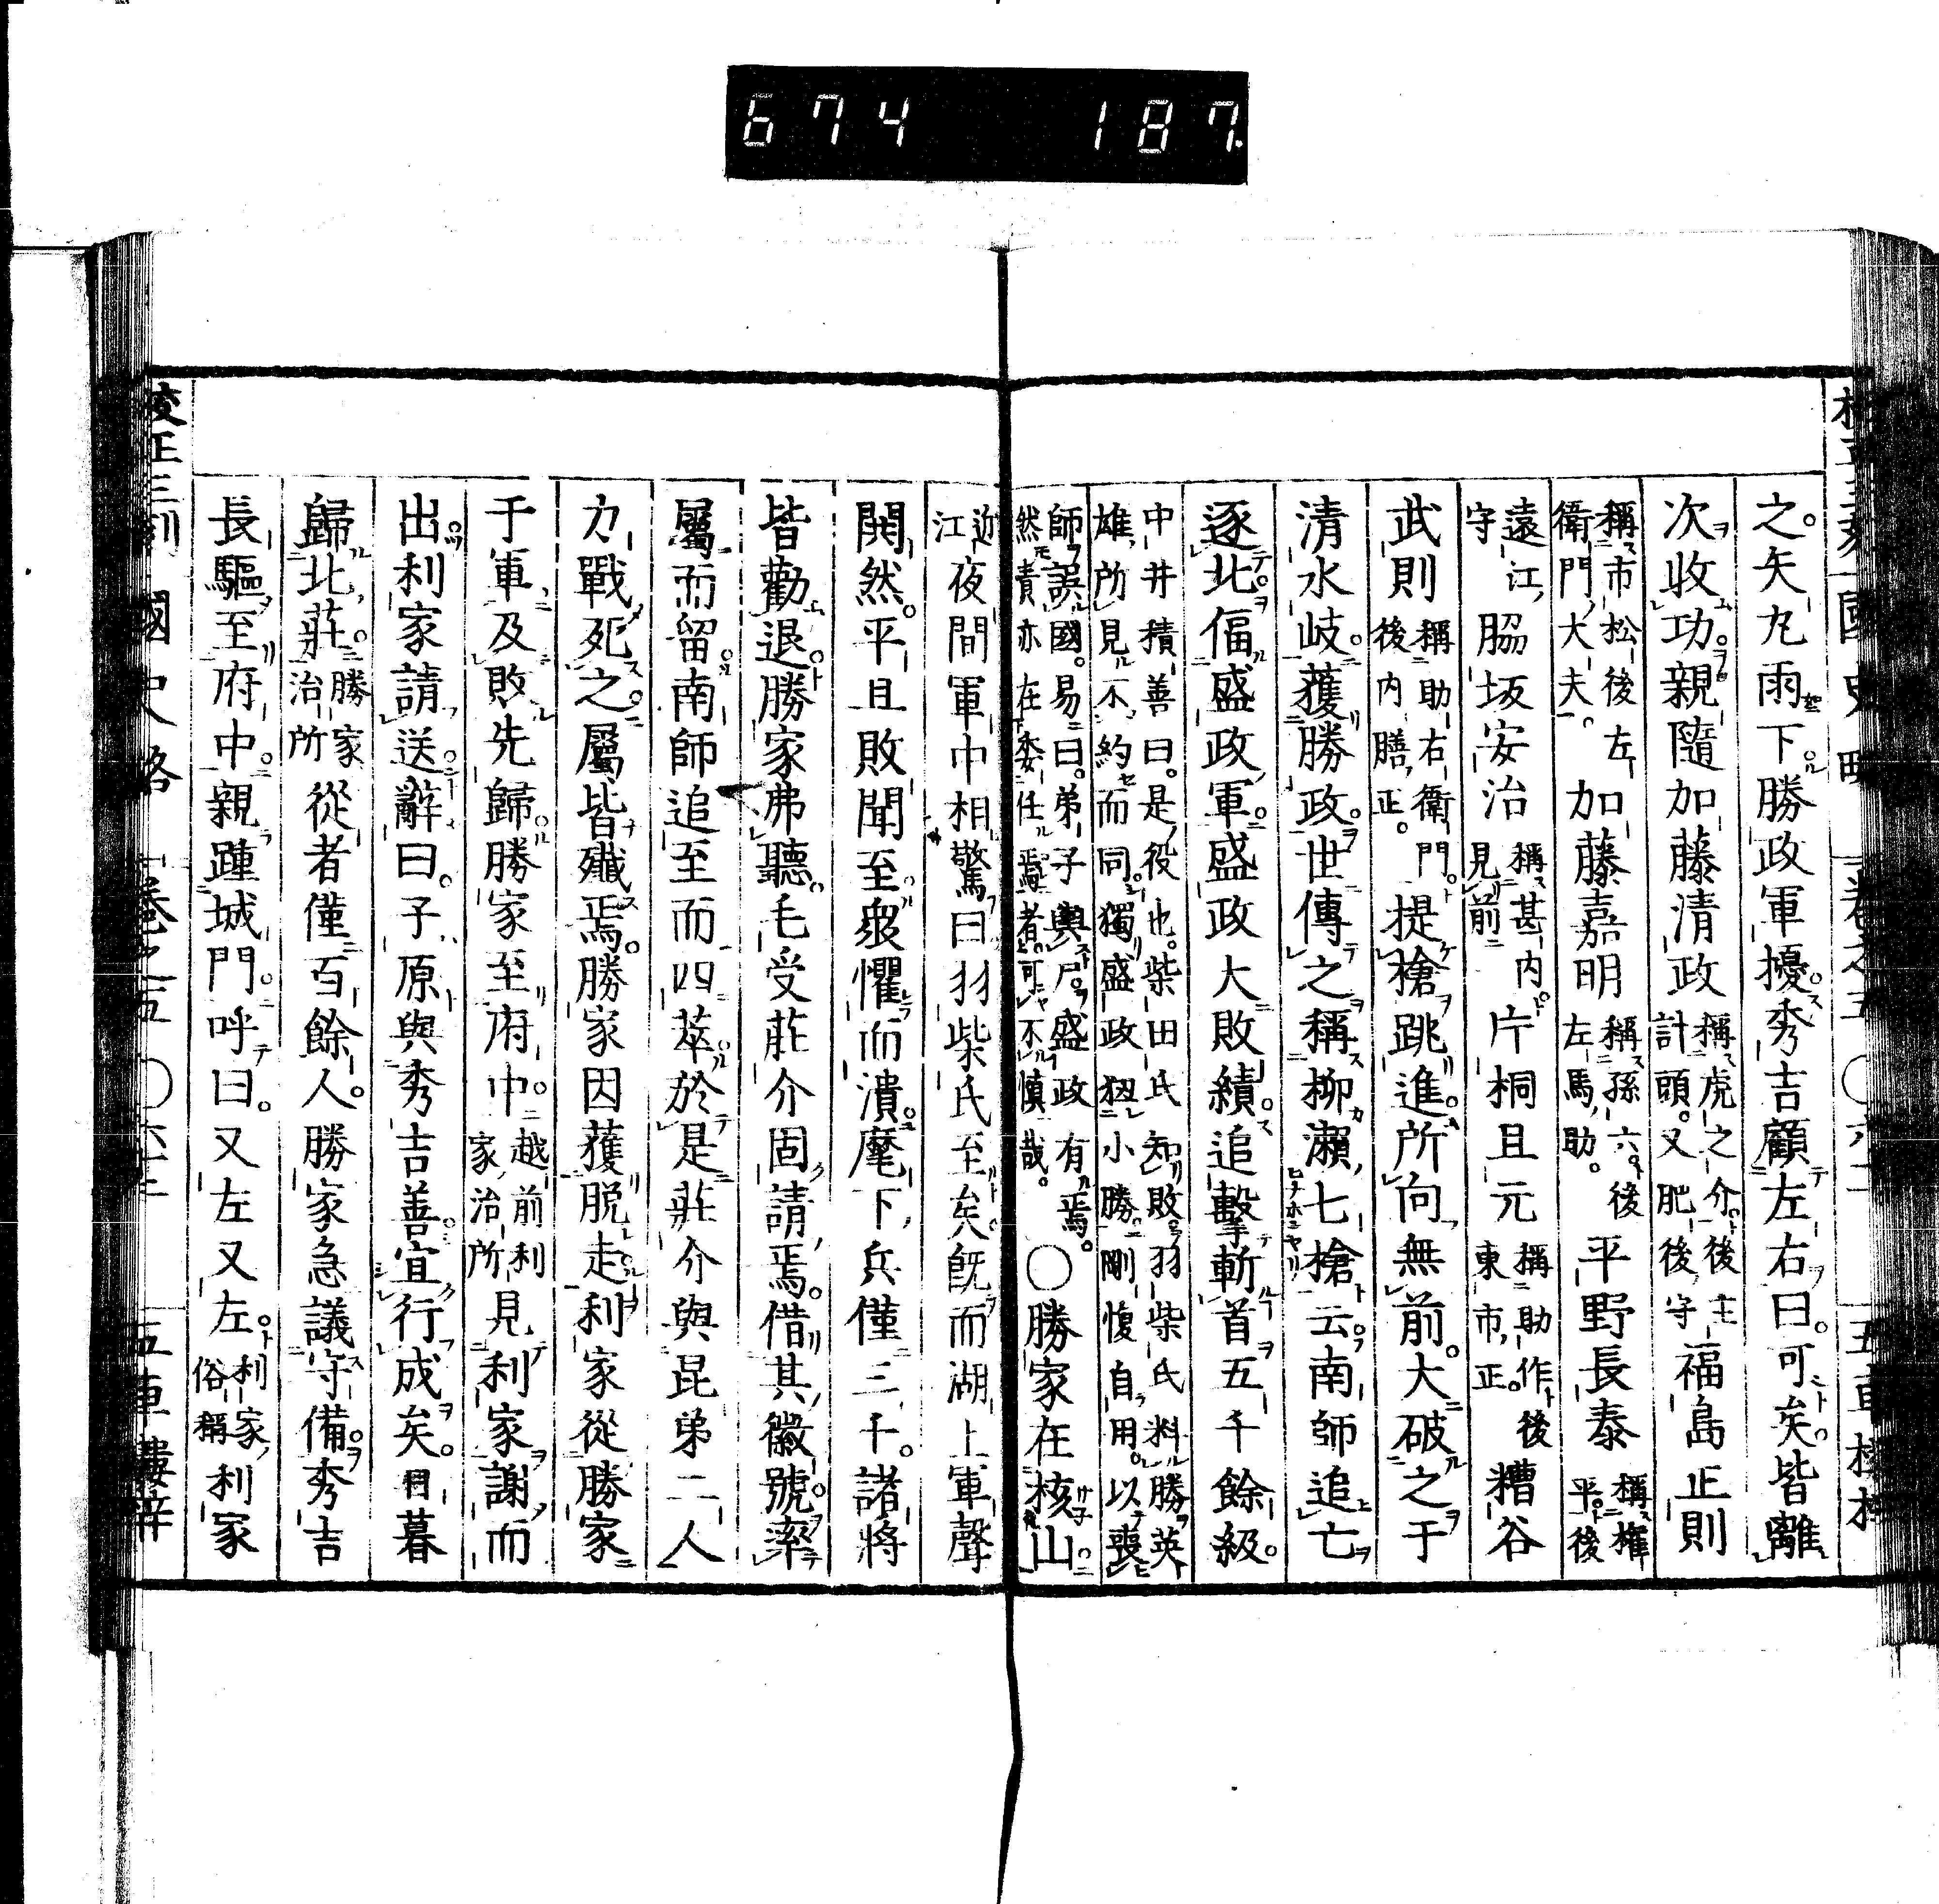 674 187
之。矢丸雨下。勝政軍擾。秀吉顧左右曰。可矣。皆離
次收功。親隨加藤清政稱虎之介。後主計頭。又肥後守福島正則
稱市松後左衛門大夫。加藤嘉明稱孫六。後左馬助。平野長泰稱權平。後
遠江守脇坂安治稱甚内見前片桐且元稱助作後東市正。糟谷
武則稱助右衛門後内膳正。提槍跳進。所向無前。大破之于
清水岐。獲勝政。世傳之稱柳瀨七槍云。南師追亡
逐北。偪盛政軍。盛政大敗績。追擊斬首五千餘級。
中井積善曰。是役也。柴田氏知敗。羽柴氏料勝。英雄所見不約而同。獨盛政狃小勝。剛愎自用。以喪
師誤國。易曰。弟子輿尸。盛政有焉。然責亦在委任焉者。可不慎哉。〇勝家在核山
近江夜間軍中相驚曰。羽柴氏至矣。旣而湖上軍聲
鬨然。平旦敗聞至。衆懼而潰。麾下兵僅三千。諸將
皆勸退。勝家弗聽。毛受莊介固請焉。借其徽號。率
屬而留。南師追至而四萃。於是莊介與昆弟二人
力戰死之。屬皆殲焉。勝家因獲脱走。利家從勝家
于軍。及敗先歸。勝家至府中。越前利家治所見利家謝。而
出。利家請送。辭曰。子原與秀吉善。宜行成矣。日暮
歸北莊。勝家治所從者僅百餘人。勝家急議守備。秀吉
長驅至府中。親踵城門。呼曰。又左又左。利家俗稱利家
校正三刻國史略 卷之五 〇六十三 五車樓梓